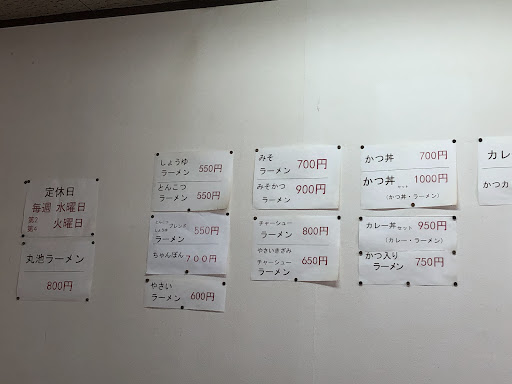 定休日
毎週 水曜日
第2
第4 火曜日
丸池ラーメン
800円
しょうゆ
ラーメン 550円
とんこつ
ラーメン 550円
ブレンド
ラーメン 550円
ちゃんぽん 700円
やさい
ラーメン 600円
みそ
ラーメン 700円
みそかつ
ラーメン 900円
チャーシュー
ラーメン 800円
やさいきざみ
チャーシュー
ラーメン 650円
かつ丼 700円
かつ丼セット 1000円
(かつ丼・ラーメン)
カレー丼セット 950円
(カレー・ラーメン)
かつ入り
ラーメン 750円
カレ
かつカ